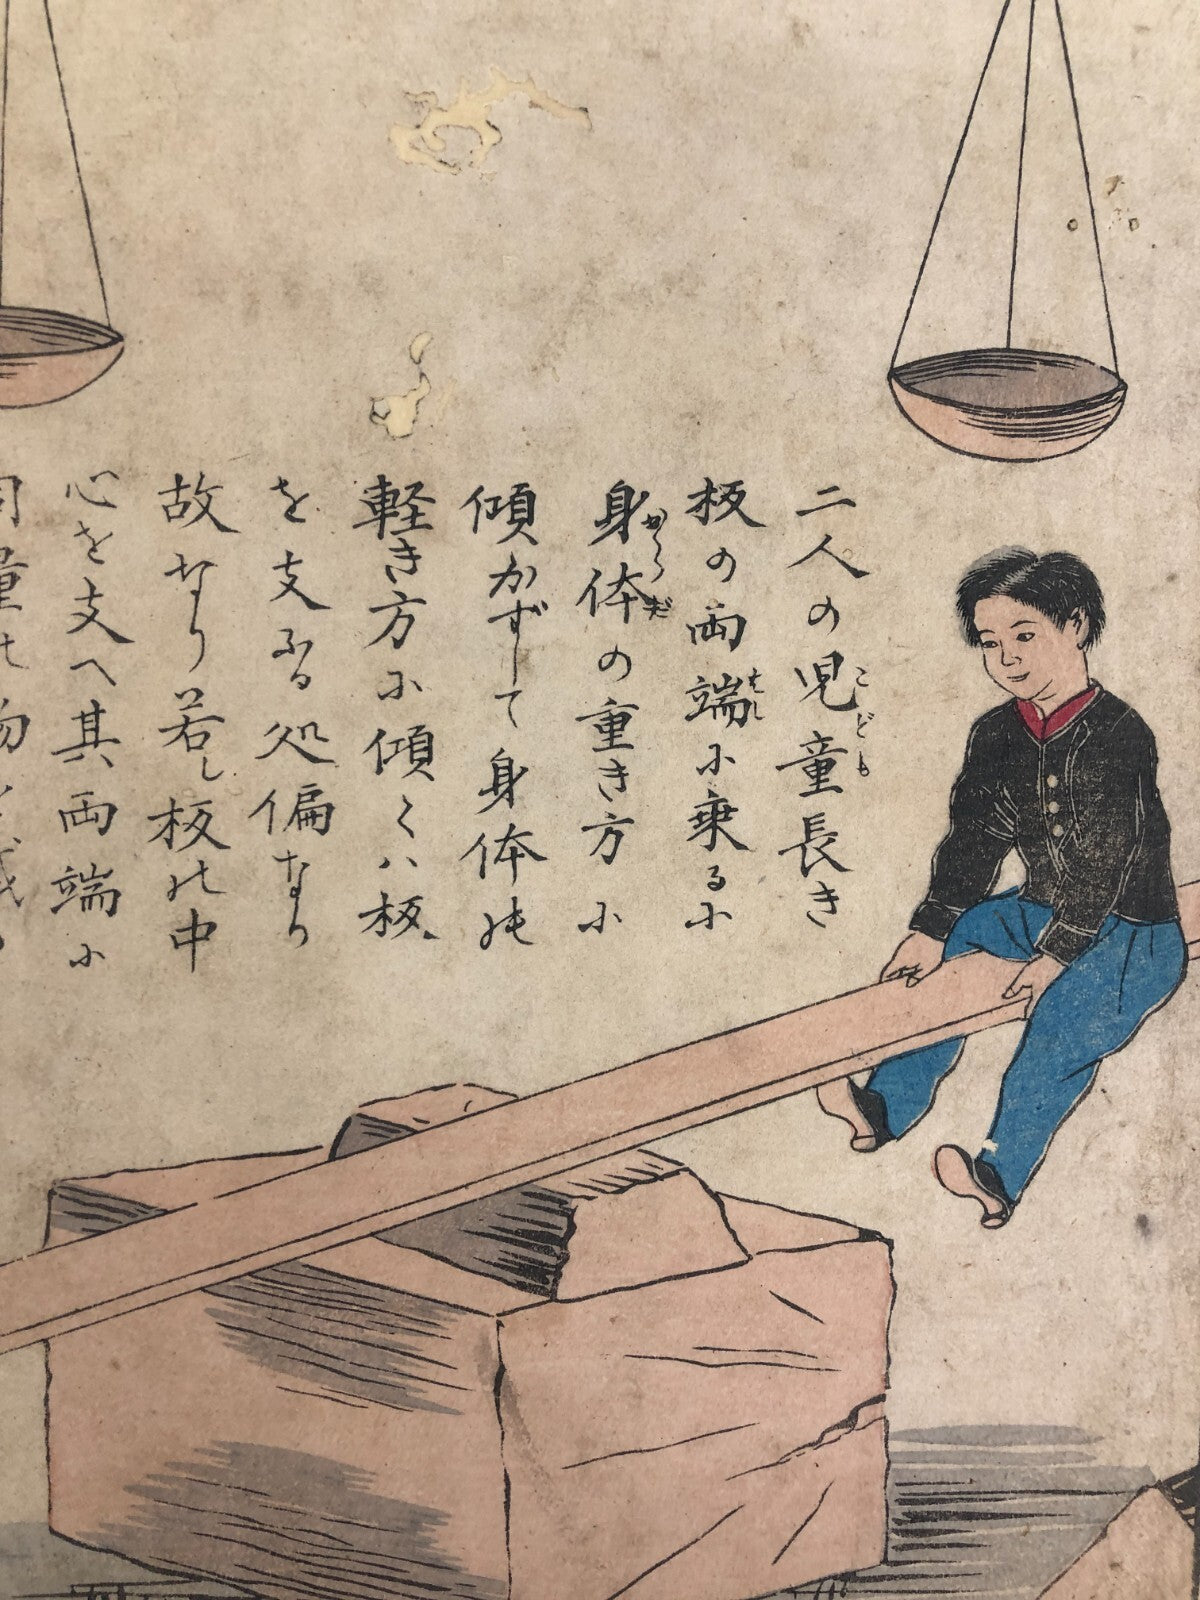 二人の児童長き
板の両端に乗るに
身体の重き方に
傾かずして身体の
軽き方に傾くハ板
を支ふる処偏なり
故なり若し板の中
心を支へ其両端に
同量の物を載
こども
はし
からだ